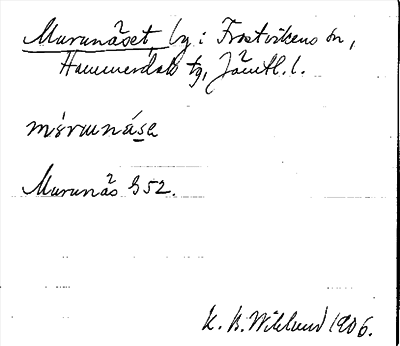 Murunäset, by i Frostvikens sn,
Hammerdals tg, Jämtl. l.
Murunäs 352.
K. B. Wiklund 1906.